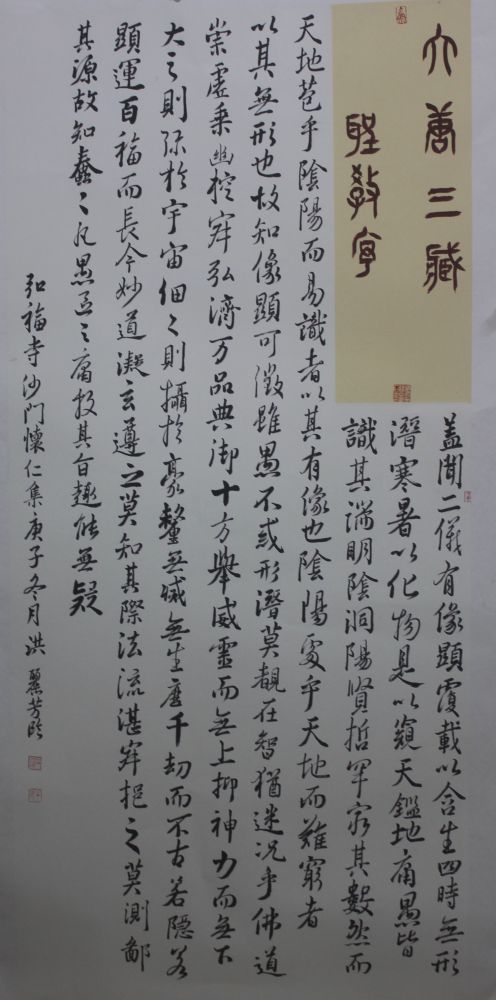 大唐三藏
聖教序
蓋聞二儀有像顯覆載以含生四時無形
潛寒暑以化物是以窺天鑑地庸愚皆
識其端明陰洞陽賢哲罕窮其數然而
天地苞乎陰陽而易識者以其有像也陰陽處乎天地而難窮者
以其無形也故知像顯可徵雖愚不惑形潛莫覩在智猶迷况乎佛道
崇虛乘幽控寂弘濟万品典御十方舉威靈而無上抑神力而無下
大之則弥於宇宙細之則攝於豪釐無滅無生歷千劫而不古若隱若
顯運百福而長今妙道凝玄遵之莫知其際法流湛寂挹之莫測鄙
其源故知蠢〻凡愚區〻庸投其旨趣能無疑
弘福寺沙門懷仁集庚子冬月洪麗芳臨